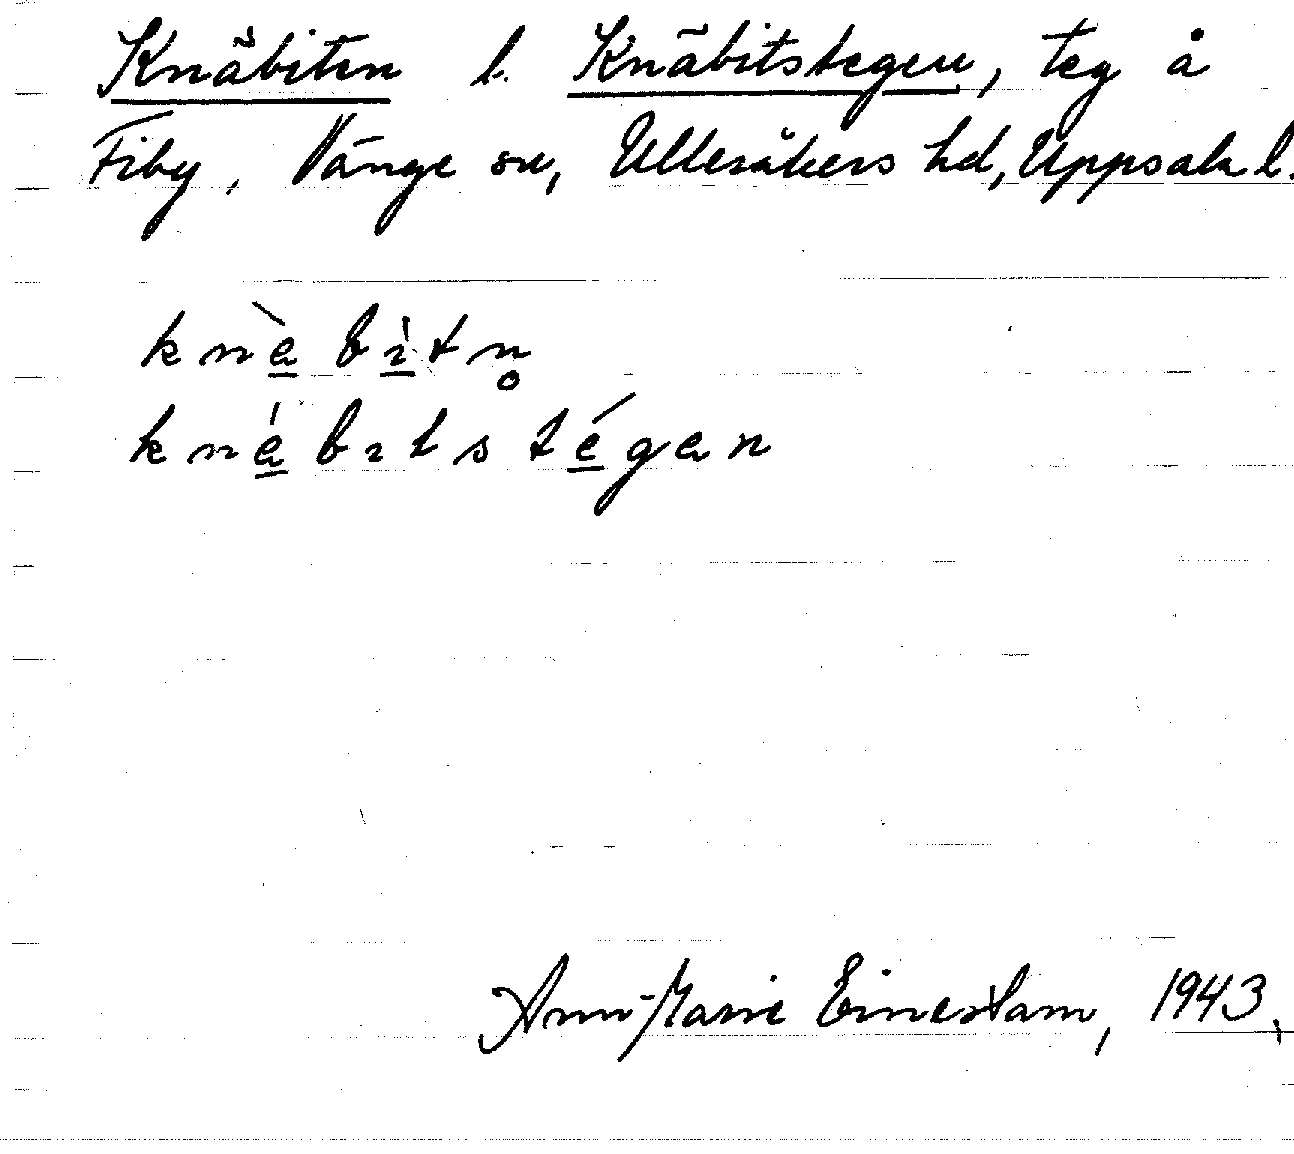 Knäbiten l. Knäbitstegen, teg å
Fiby, Vänge sn, Ulleråkers hd, Uppsala l.
knὲbı̀tn̥
knέbıtstégan
Ann-Marie Einestam, 1943.